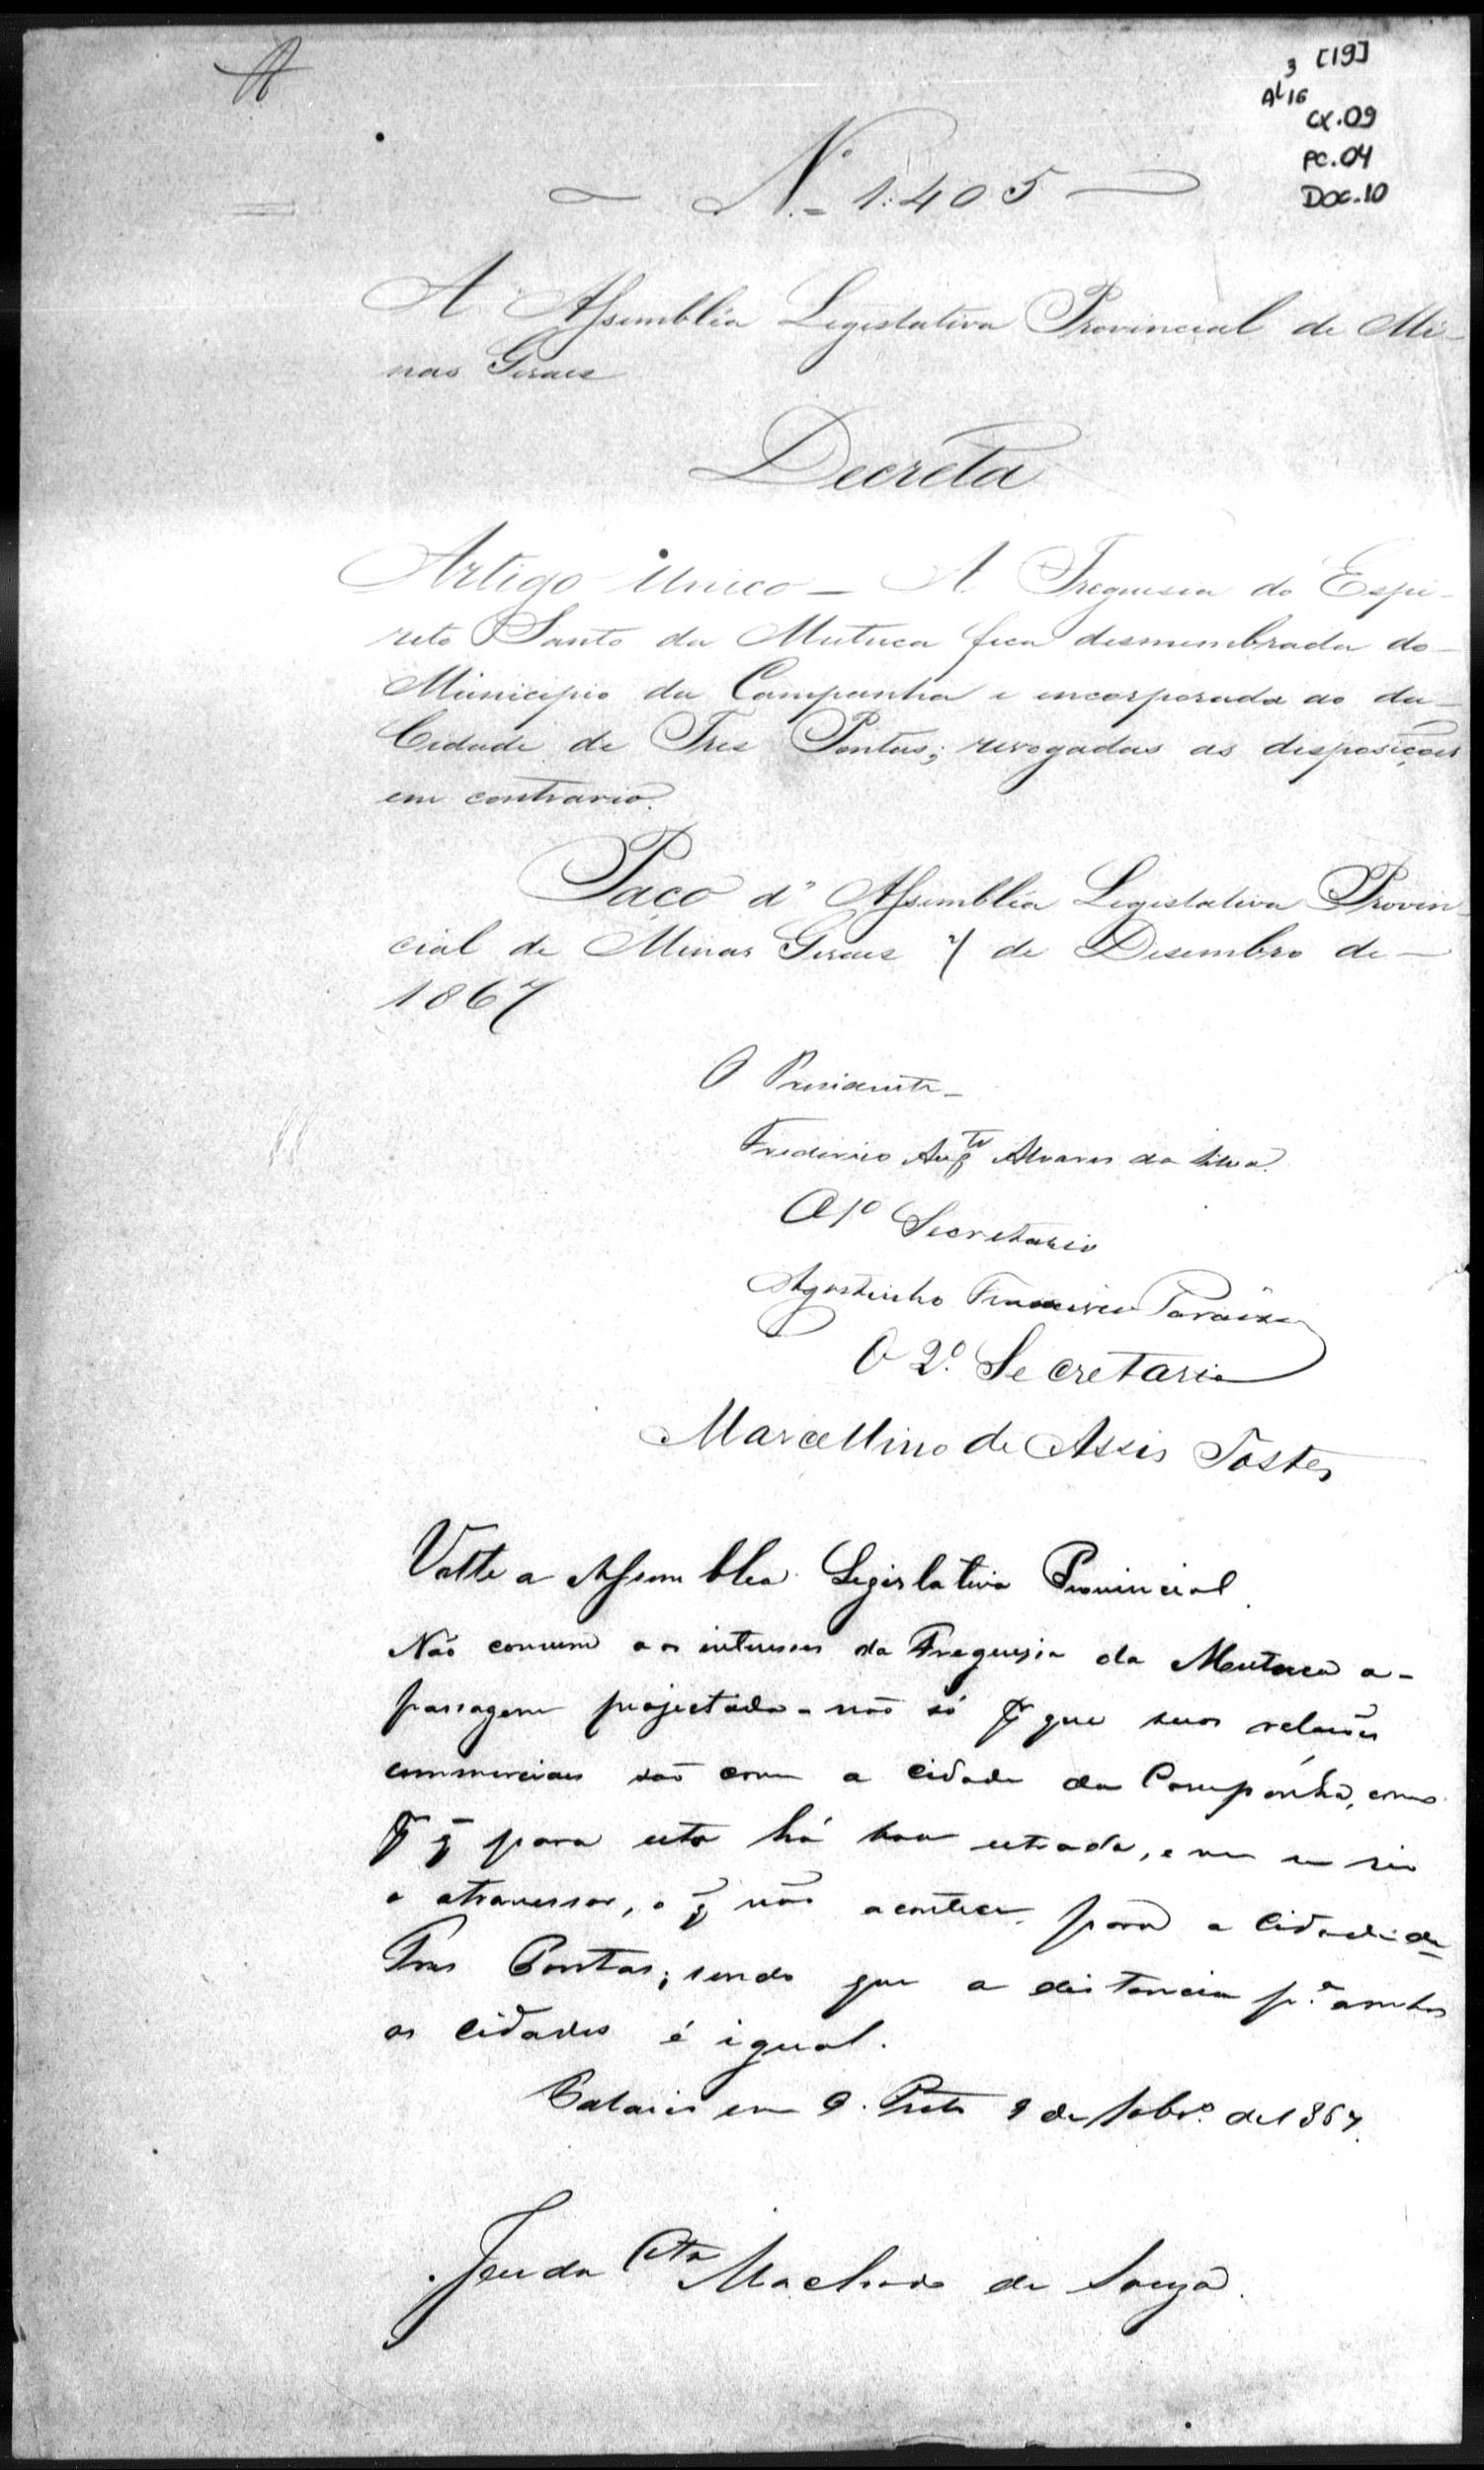 3 [19]
AL 16
CX.09
PC.04
DOC.10
N.º 1:405
A Assembléa Legislativa Provincial de Mi-
nas Geraes
Decreta
Artigo Unico — A Freguesia do Espi-
rito Santo da Mutuca fica desmembrada do
Municipio da Campanha e encorporada ao da
Cidade de Tres Pontas; revogadas as disposições
em contrario.
Paço d' Assembléa Legislativa Provin-
cial de Minas Geraes 7 de Desembro de
1867
O Presidente
Frederico Augto Alvares da Silva.
O 1º Secretario
Agostinho Francisco Paraizo
O 2º Secretario
Marcellino de Assis Tostes
Volte a Assembléa Legislativa Provincial.
Não convem aos interesses da Freguesia da Mutuca a-
passagem projectada - não só p que suas relações
commerciaes são com a cidade da Campanha, como
p q̃ para esta há boa estrada, e nem um rio
a atravessar, o q̃ não acontece para a Cidade de
Tres Pontas; sendo que a distancia p.ª ambas
as cidades é igual.
Palacio em O. Preto 9 de de 1867.
da Cta Machado de Souza.